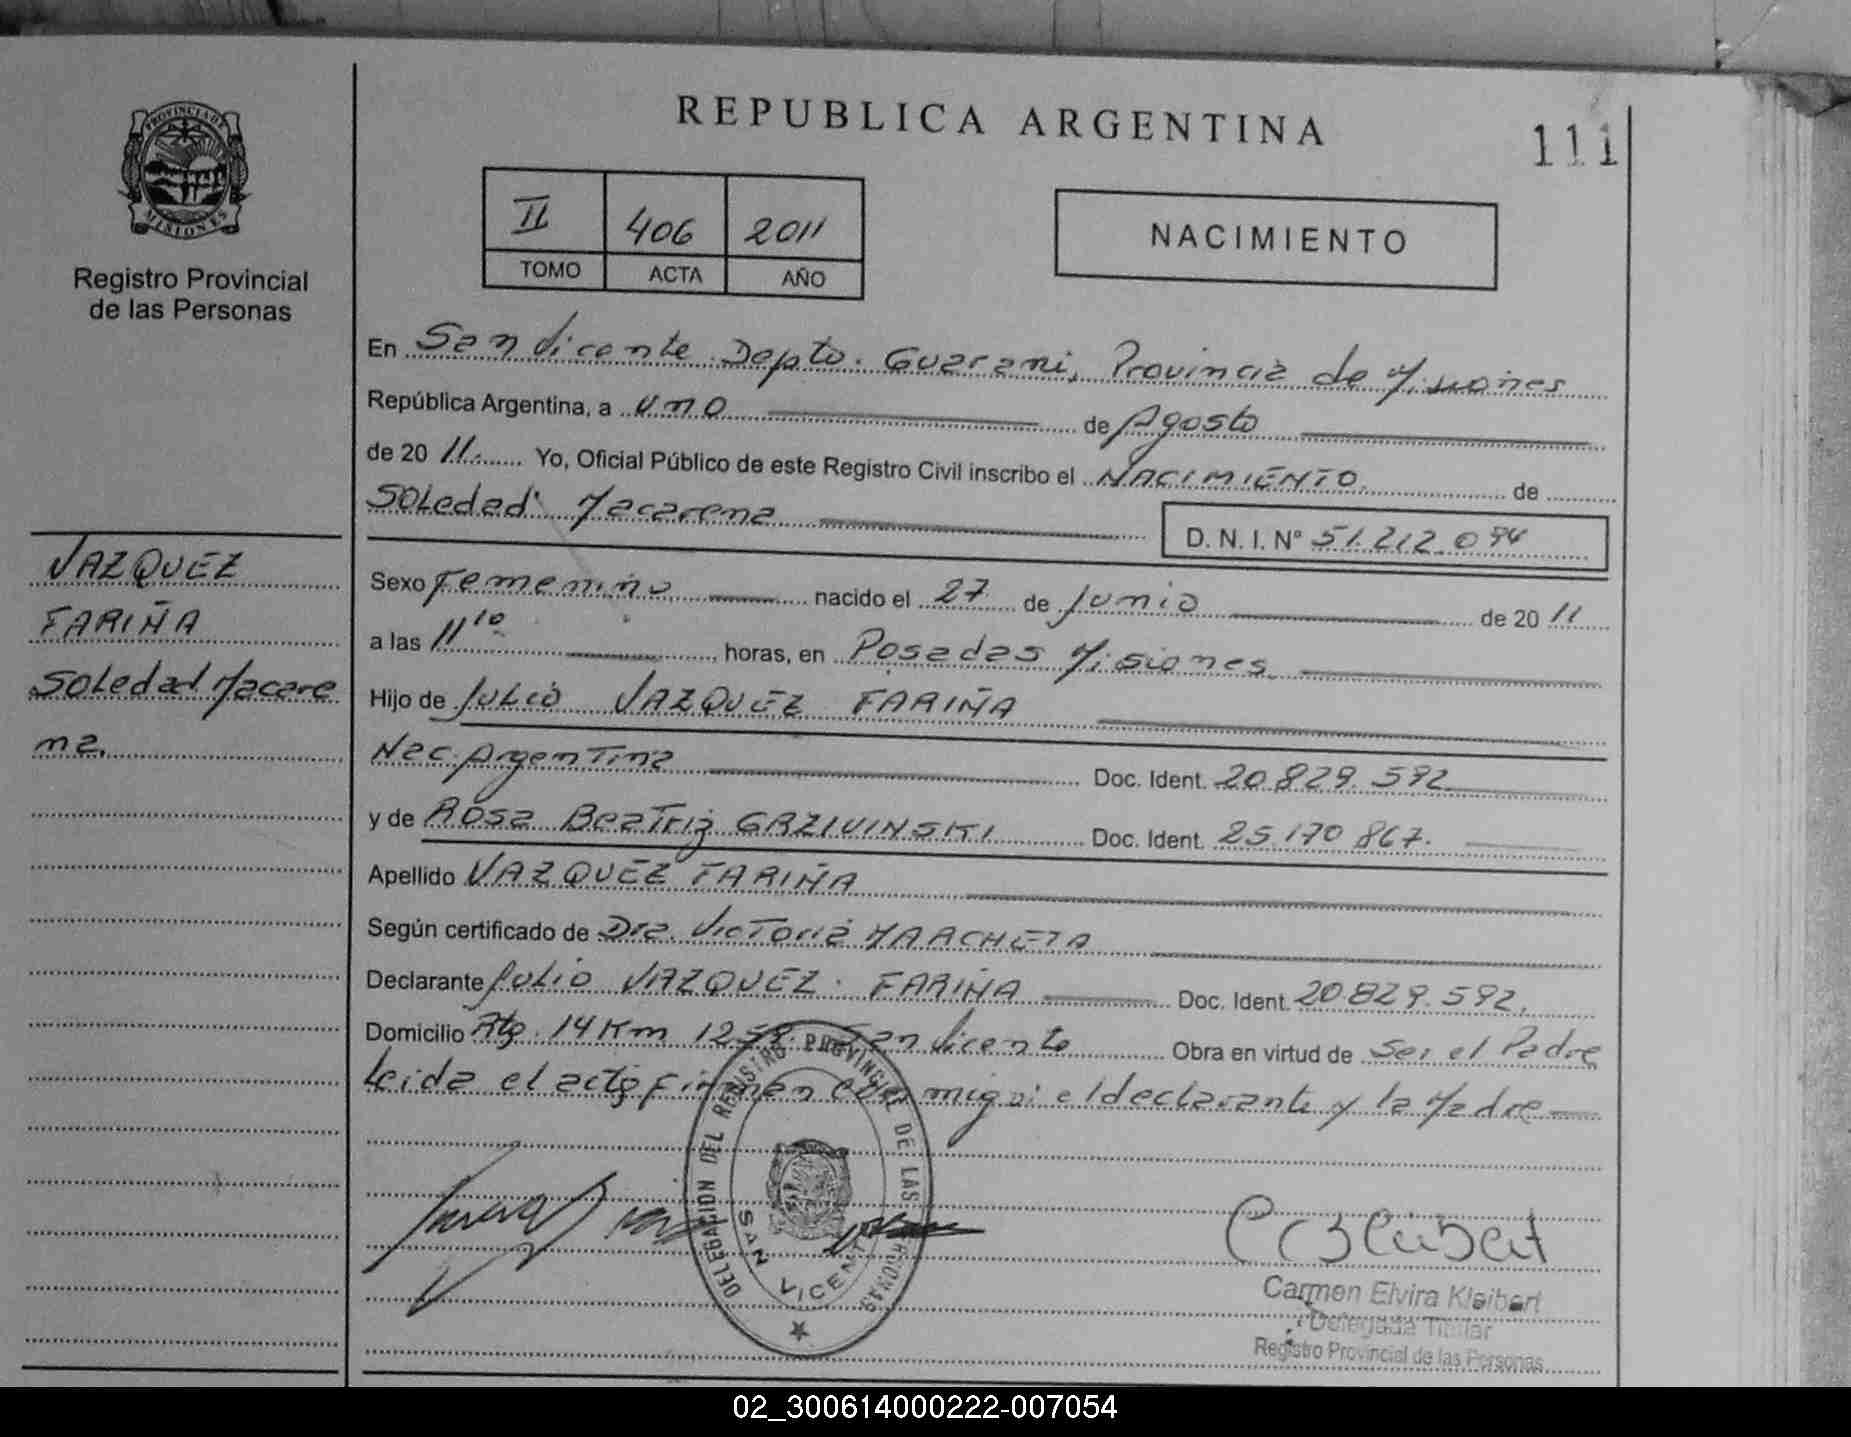 REPUBLICA ARGENTINA
111
PROVINCIA DE
MISIONES
Registro Provincial
de las Personas
II 406 2011
TOMO ACTA AÑO
NACIMIENTO
En San Vicente Depto. Guarani, Provincia de Misiones
República Argentina, a uno de Agosto
de 20 11. Yo, Oficial Público de este Registro Civil inscribo el NACIMIENTO de
Soledad Macarena
D. N. I. N° 51.212.094
VAZQUEZ
FARIÑA
Soledad Macare
na.
Sexo Femenino nacido el 27 de Junio de 20 11
a las 11 10 horas, en Posadas Misiones
Hijo de Julio VAZQUEZ FARIÑA
Nac. Argentina Doc. Ident. 20.829.592
y de Rosa Beatriz GRZIVINSKI Doc. Ident. 25.170 867.
Apellido VAZQUEZ FARIÑA
Según certificado de Dra. Victoria
Declarante Julio VAZQUEZ FARIÑA Doc. Ident. 20.829.592.
Domicilio Rta. 14 Km 1259. San Vicente Obra en virtud de Ser el Padre
Leida el acta firman conmigo el declarante y la Madre
DELEGACION DEL REGISTRO PROVINCIAL DE LAS PERSONAS
SAN VICENTE
Carmen Elvira Kleibert
Delegada Titular
Registro Provincial de las Personas
02_300614000222-007054